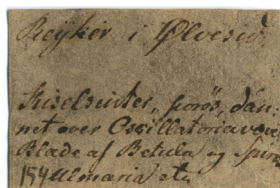 Reykir i Ølvesiv
Kiselsinter, porös, dan,
net over Oscillatoria
Blade af Betula og Spiræ
154 Ulmaria etc